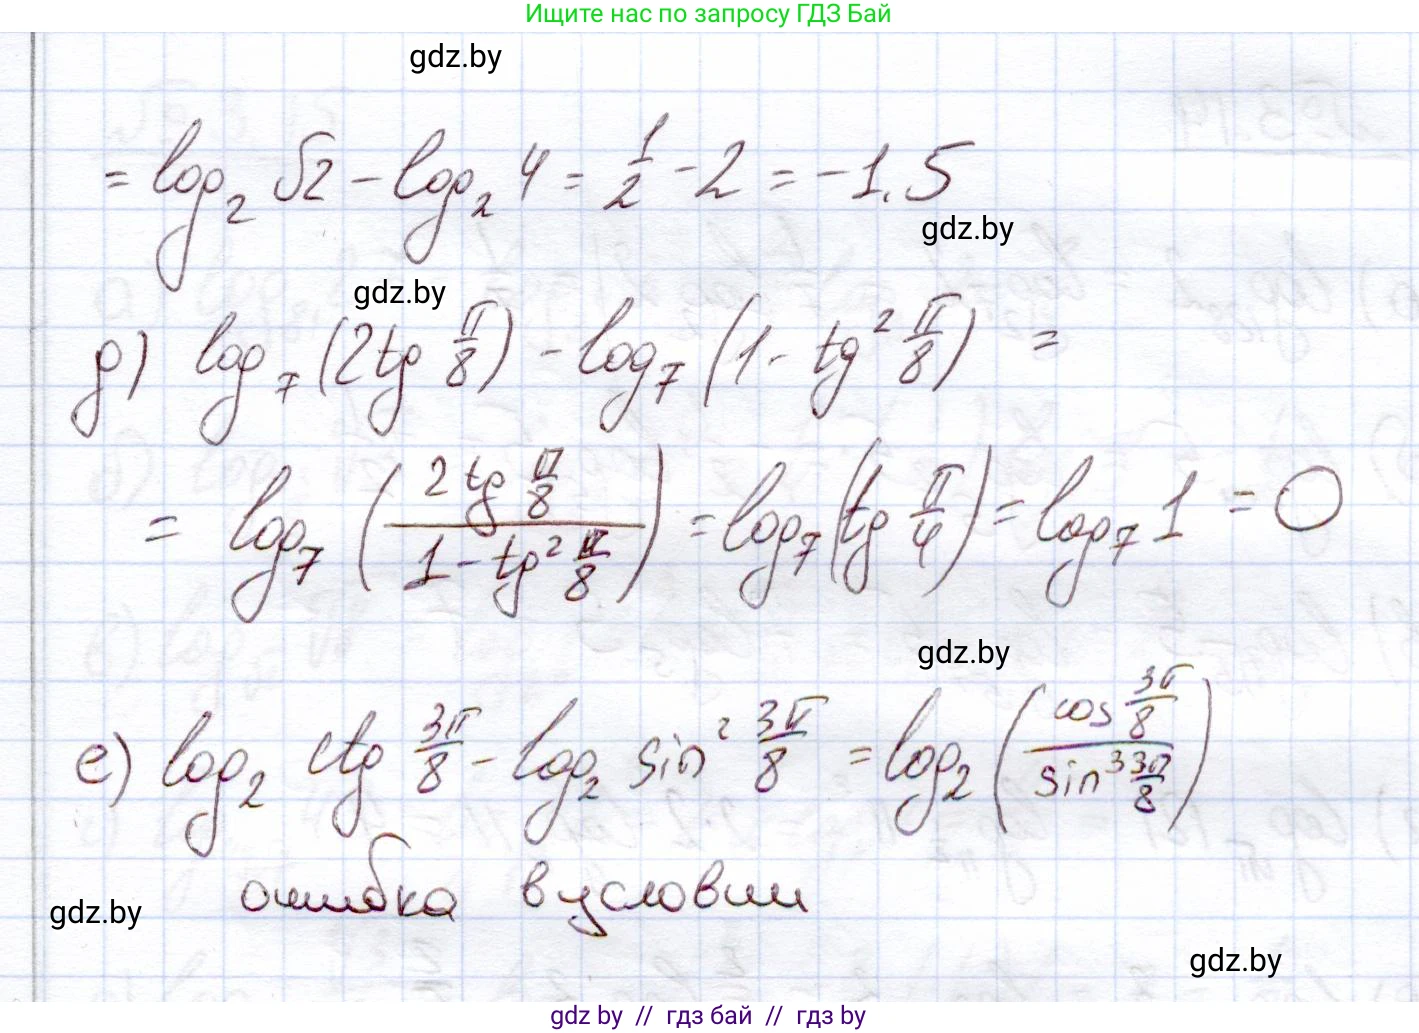 Ищите нас по запросу ГДЗ Бай
gdz.by
= log₂ √2 - log₂ 4 = 1/2 - 2 = -1.5
gdz.by
gdz.by
д) log₇ (2tg π/8) - log₇ (1 - tg² π/8) =
= log₇ (2tg π/8 / 1 - tg² π/8) = log₇ (tg π/4) = log₇ 1 = 0
gdz.by
е) log₂ ctg 3π/8 - log₂ sin² 3π/8 = log₂ (cos 3π/8 / sin³ 3π/8)
ошибка в условии
gdz.by
gdz.by
gdz by // гдз бай // гдз by